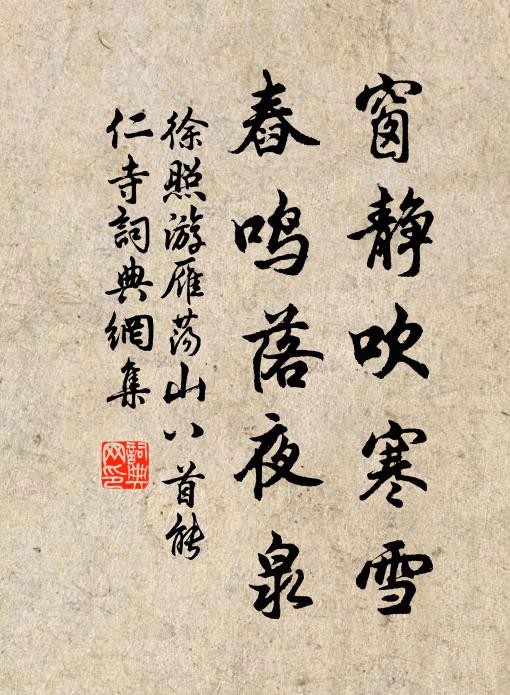 窗静吹寒雪
舂鸣落夜泉
徐照游雁荡山八首能
仁寺詞典網集
詞典
网印